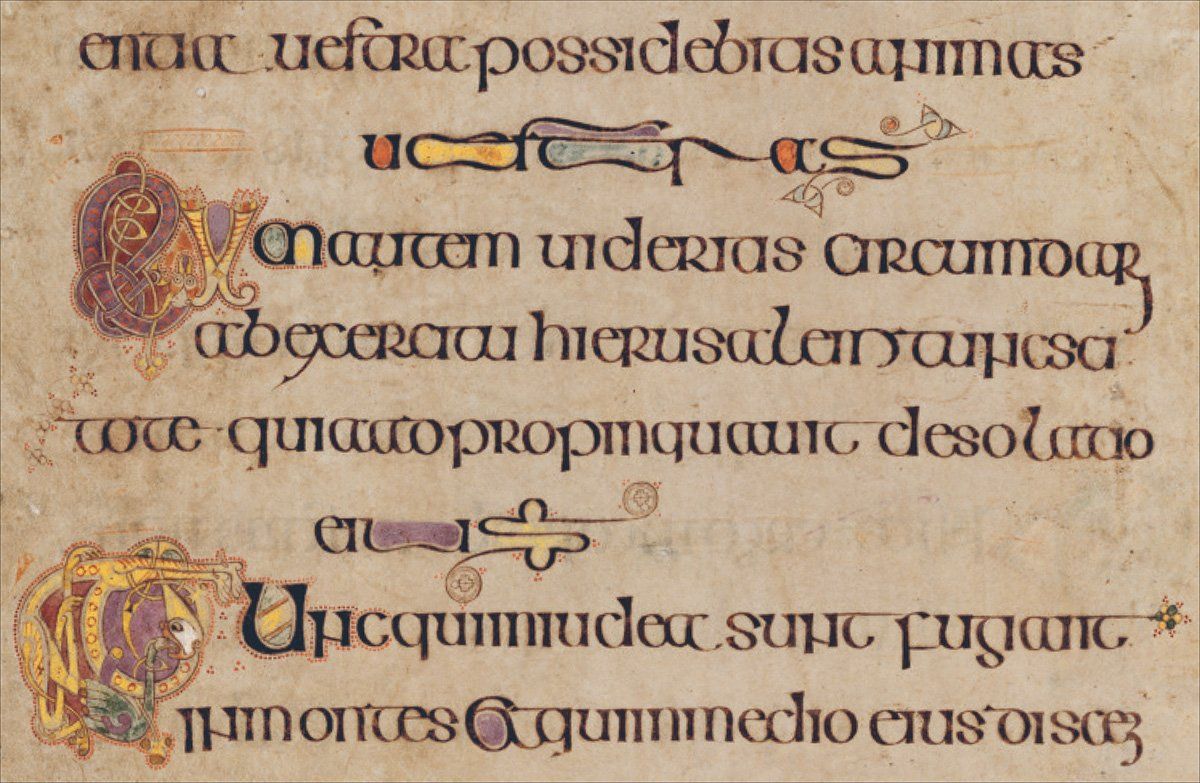 entia uestra possidebitis animas
uestras
Cum autem uideritis circumdari
ab exercitu hierusalem tunc sci
tote quia adpropinquauit desolatio
eius
Tunc qui in iudea sunt fugiant
in montes et qui in medio eius